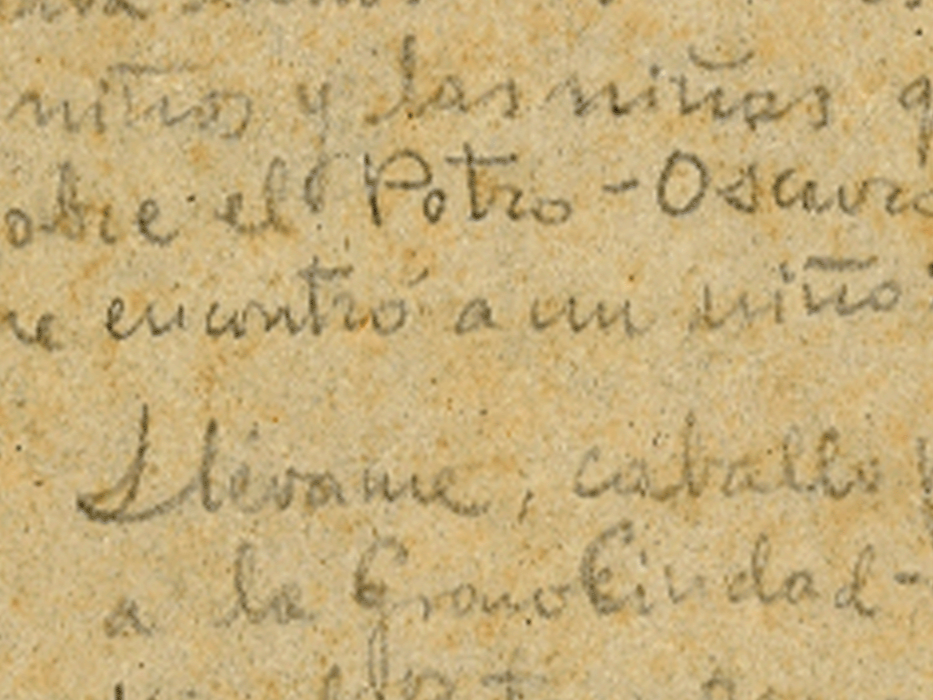 niños y las niñas q
obre el Potro-Oscuro
ne encontró a un niño
Llévame, caballo
a la Gran Ciudad-